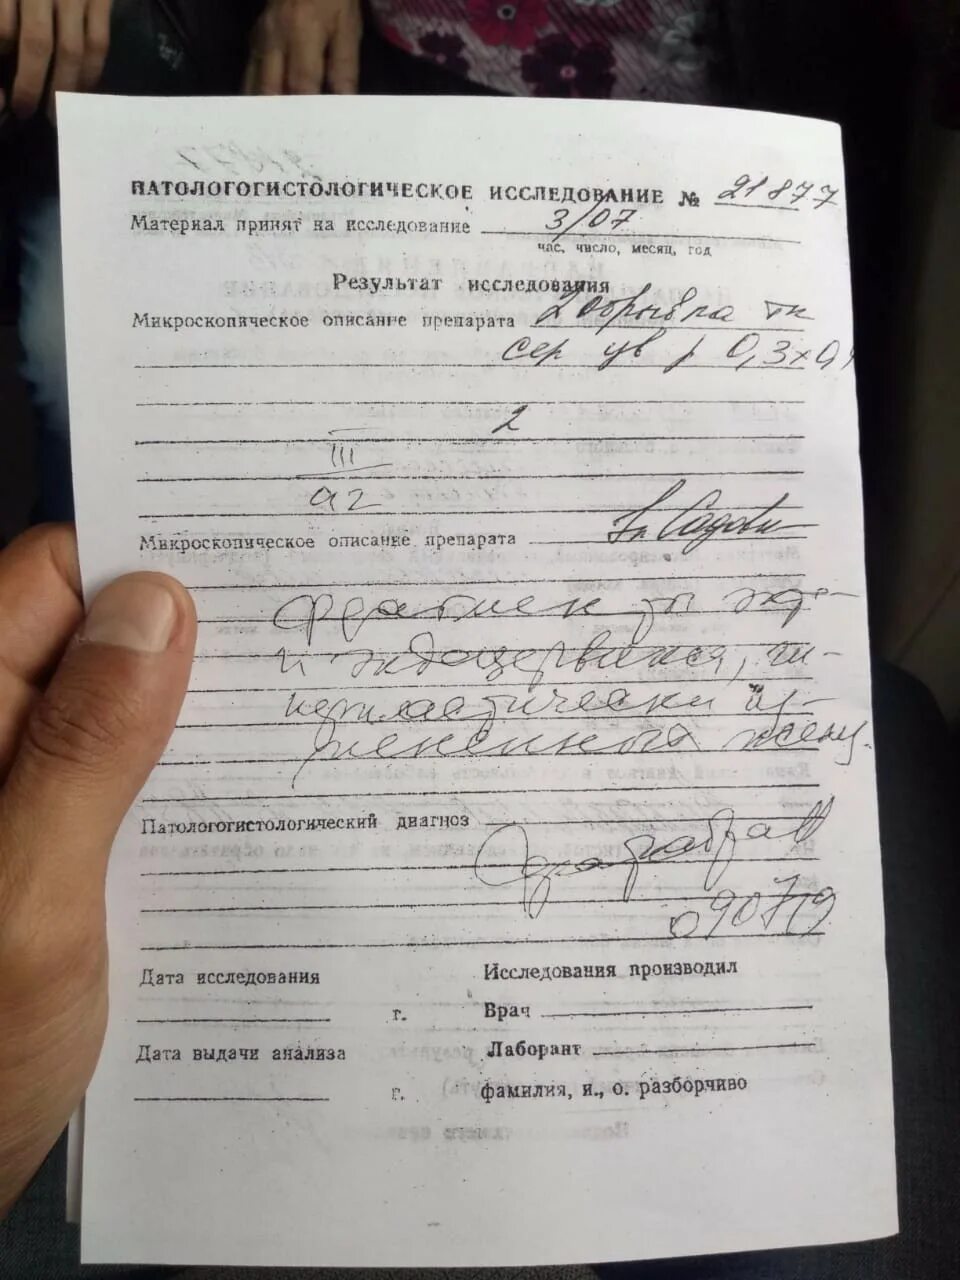 ПАТОЛОГОГИСТОЛОГИЧЕСКОЕ ИССЛЕДОВАНИЕ № 21877
Материал принят на исследование 3/07
час, число, месяц, год
Результат исследования
Микроскопическое описание препарата 2 обрывка тк
сер цв р 0,3х0,
2
III
a2
Микроскопическое описание препарата
Фрагмен ты экзо-
и эндоцервикса, ги-
перпластически из-
мененный
Патологогистологический диагноз
090719
Дата исследования
Исследования производил
г.
Врач
Дата выдачи анализа
Лаборант
г.
фамилия, и., о. разборчиво